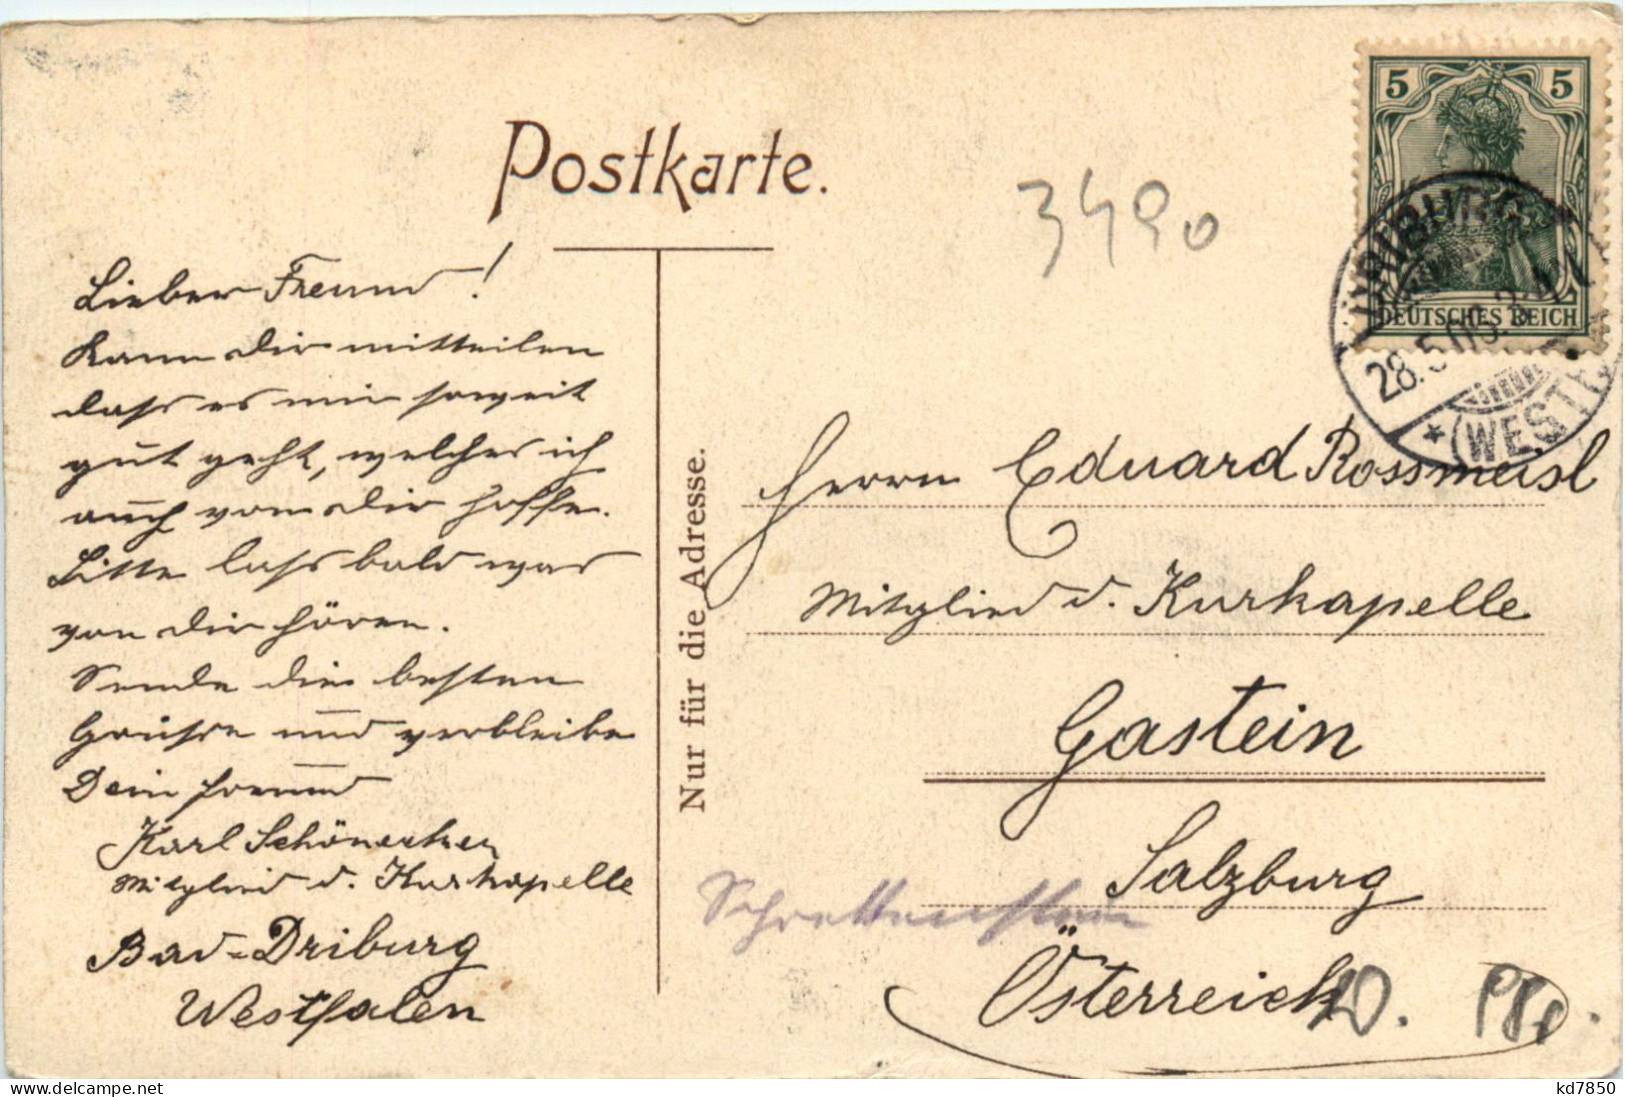 Postkarte.
3490
5 5
DEUTSCHES REICH
DRIBURG
28.5.
* (WESTF.
Lieber Freund!
Kann dir mitteilen
dass es mir soweit
gut geht, welches ich
auch von dir hoffe.
Bitte lass bald was
von dir hören.
Sende die besten
Grüsse und verbleibe
Dein Freund
Karl
Mitglied d. Kurkapelle
Bad-Driburg
Westfalen
Nur für die Adresse.
Herrn Eduard Rossmeisl
Mitglied d. Kurkapelle
Gastein
Salzburg
Österreich
kd7850